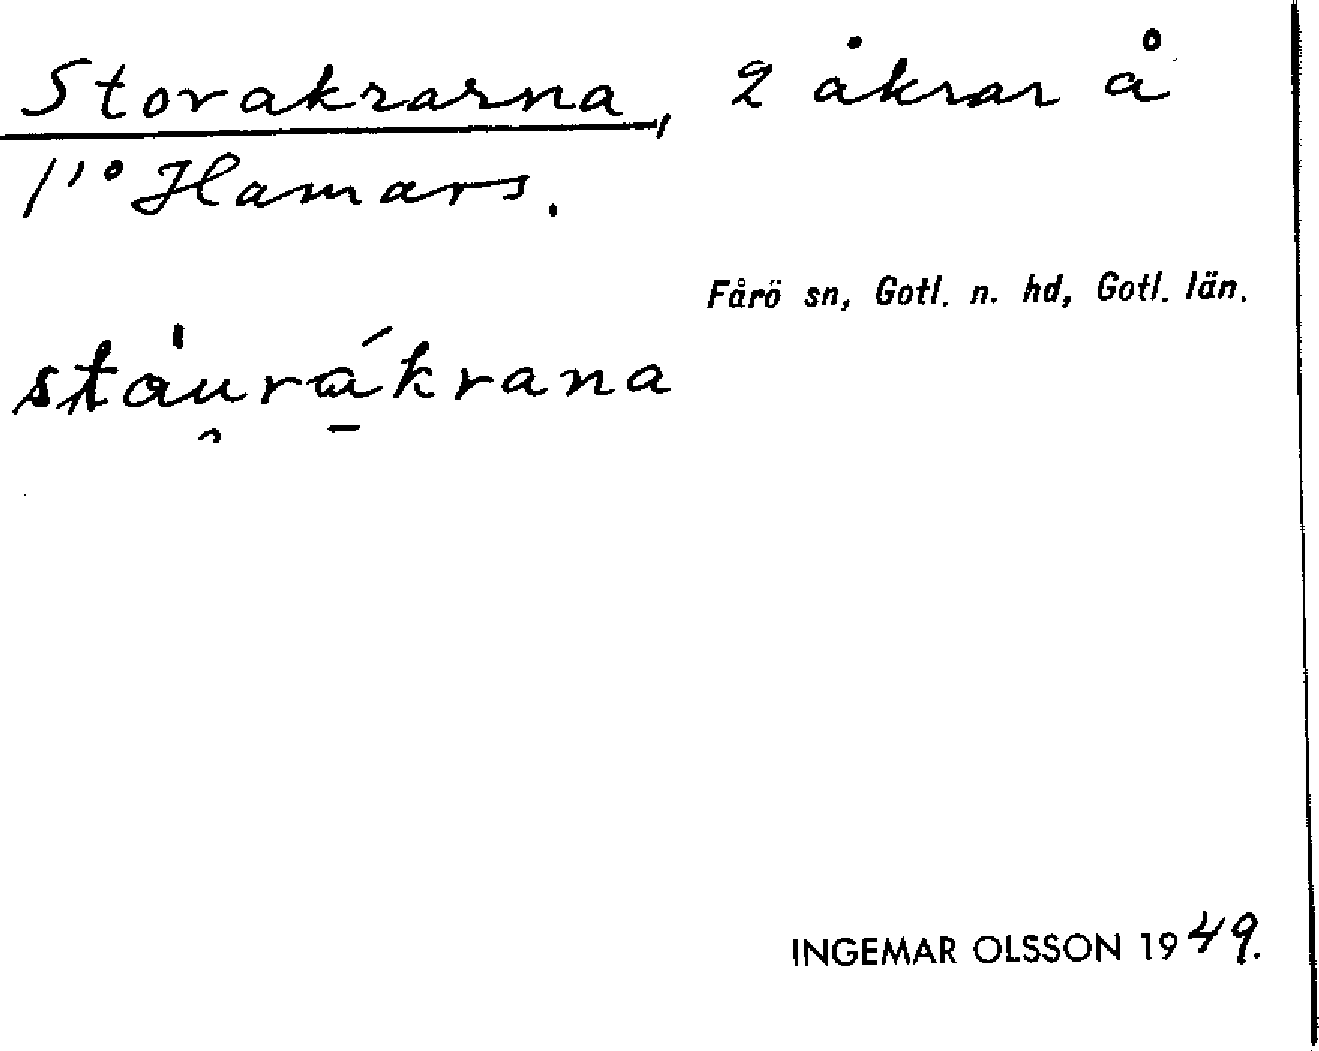 Storakrarna, 2 åkrar å
1'° Hamars.
Fårö sn, Gotl. n. hd, Gotl. län.
stàu̯rá̱krana
INGEMAR OLSSON 1949.